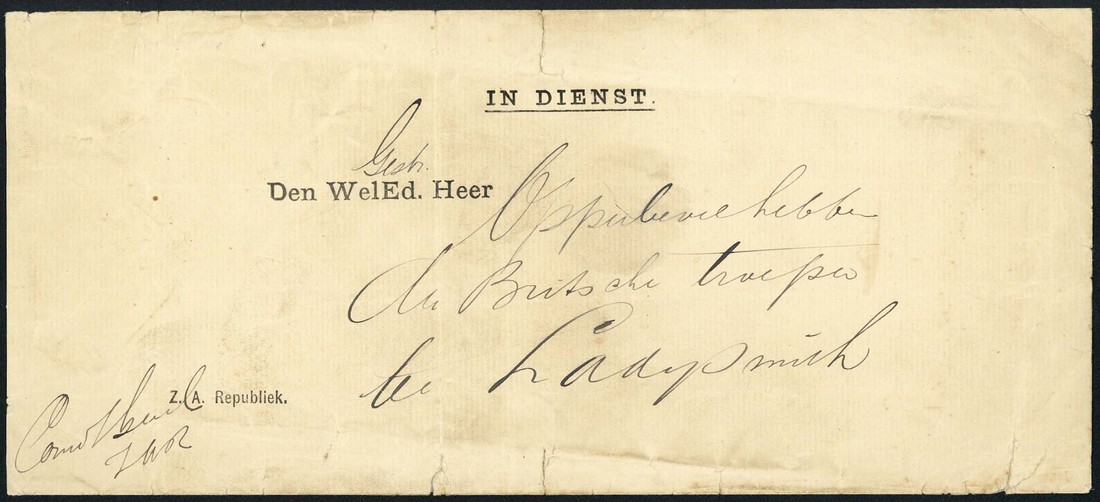 IN DIENST.
Gestr.
Den WelEd. Heer Opperbevelhebber
der Britsche troepen
te Ladysmith
Z. A. Republiek.
ZAR